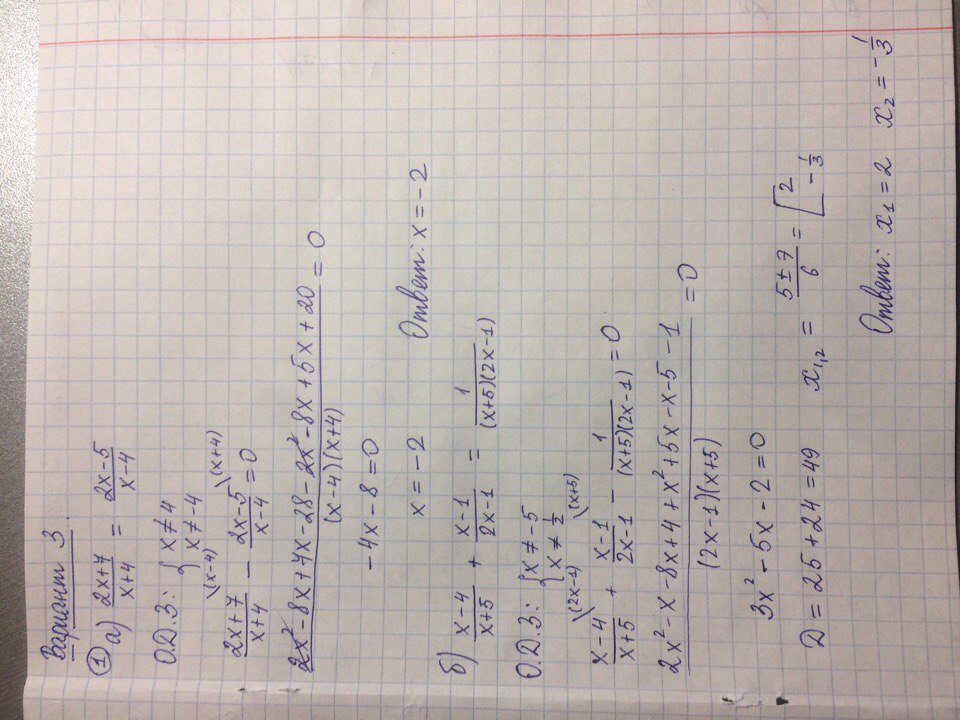 Вариант 3.
① а) (2x+7)/(x+4) = (2x-5)/(x-4)
О.Д.З: { x≠4
x≠-4
(2x+7)/(x+4) \(x-4) - (2x-5)/(x-4) \(x+4) = 0
(2x²-8x+7x-28-2x²-8x+5x+20)/((x-4)(x+4)) = 0
-4x-8=0
x=-2 Ответ: x=-2
б) (x-4)/(x+5) + (x-1)/(2x-1) = 1/((x+5)(2x-1))
О.Д.З: { x≠-5
x≠1/2
(x-4)/(x+5) \(2x-1) + (x-1)/(2x-1) \(x+5) - 1/((x+5)(2x-1)) = 0
(2x²-x-8x+4+x²+5x-x-5-1)/((2x-1)(x+5)) = 0
3x²-5x-2=0
D=25+24=49 x₁,₂ = (5±7)/6 = [ 2
-1/3
Ответ: x₁=2 x₂=-1/3